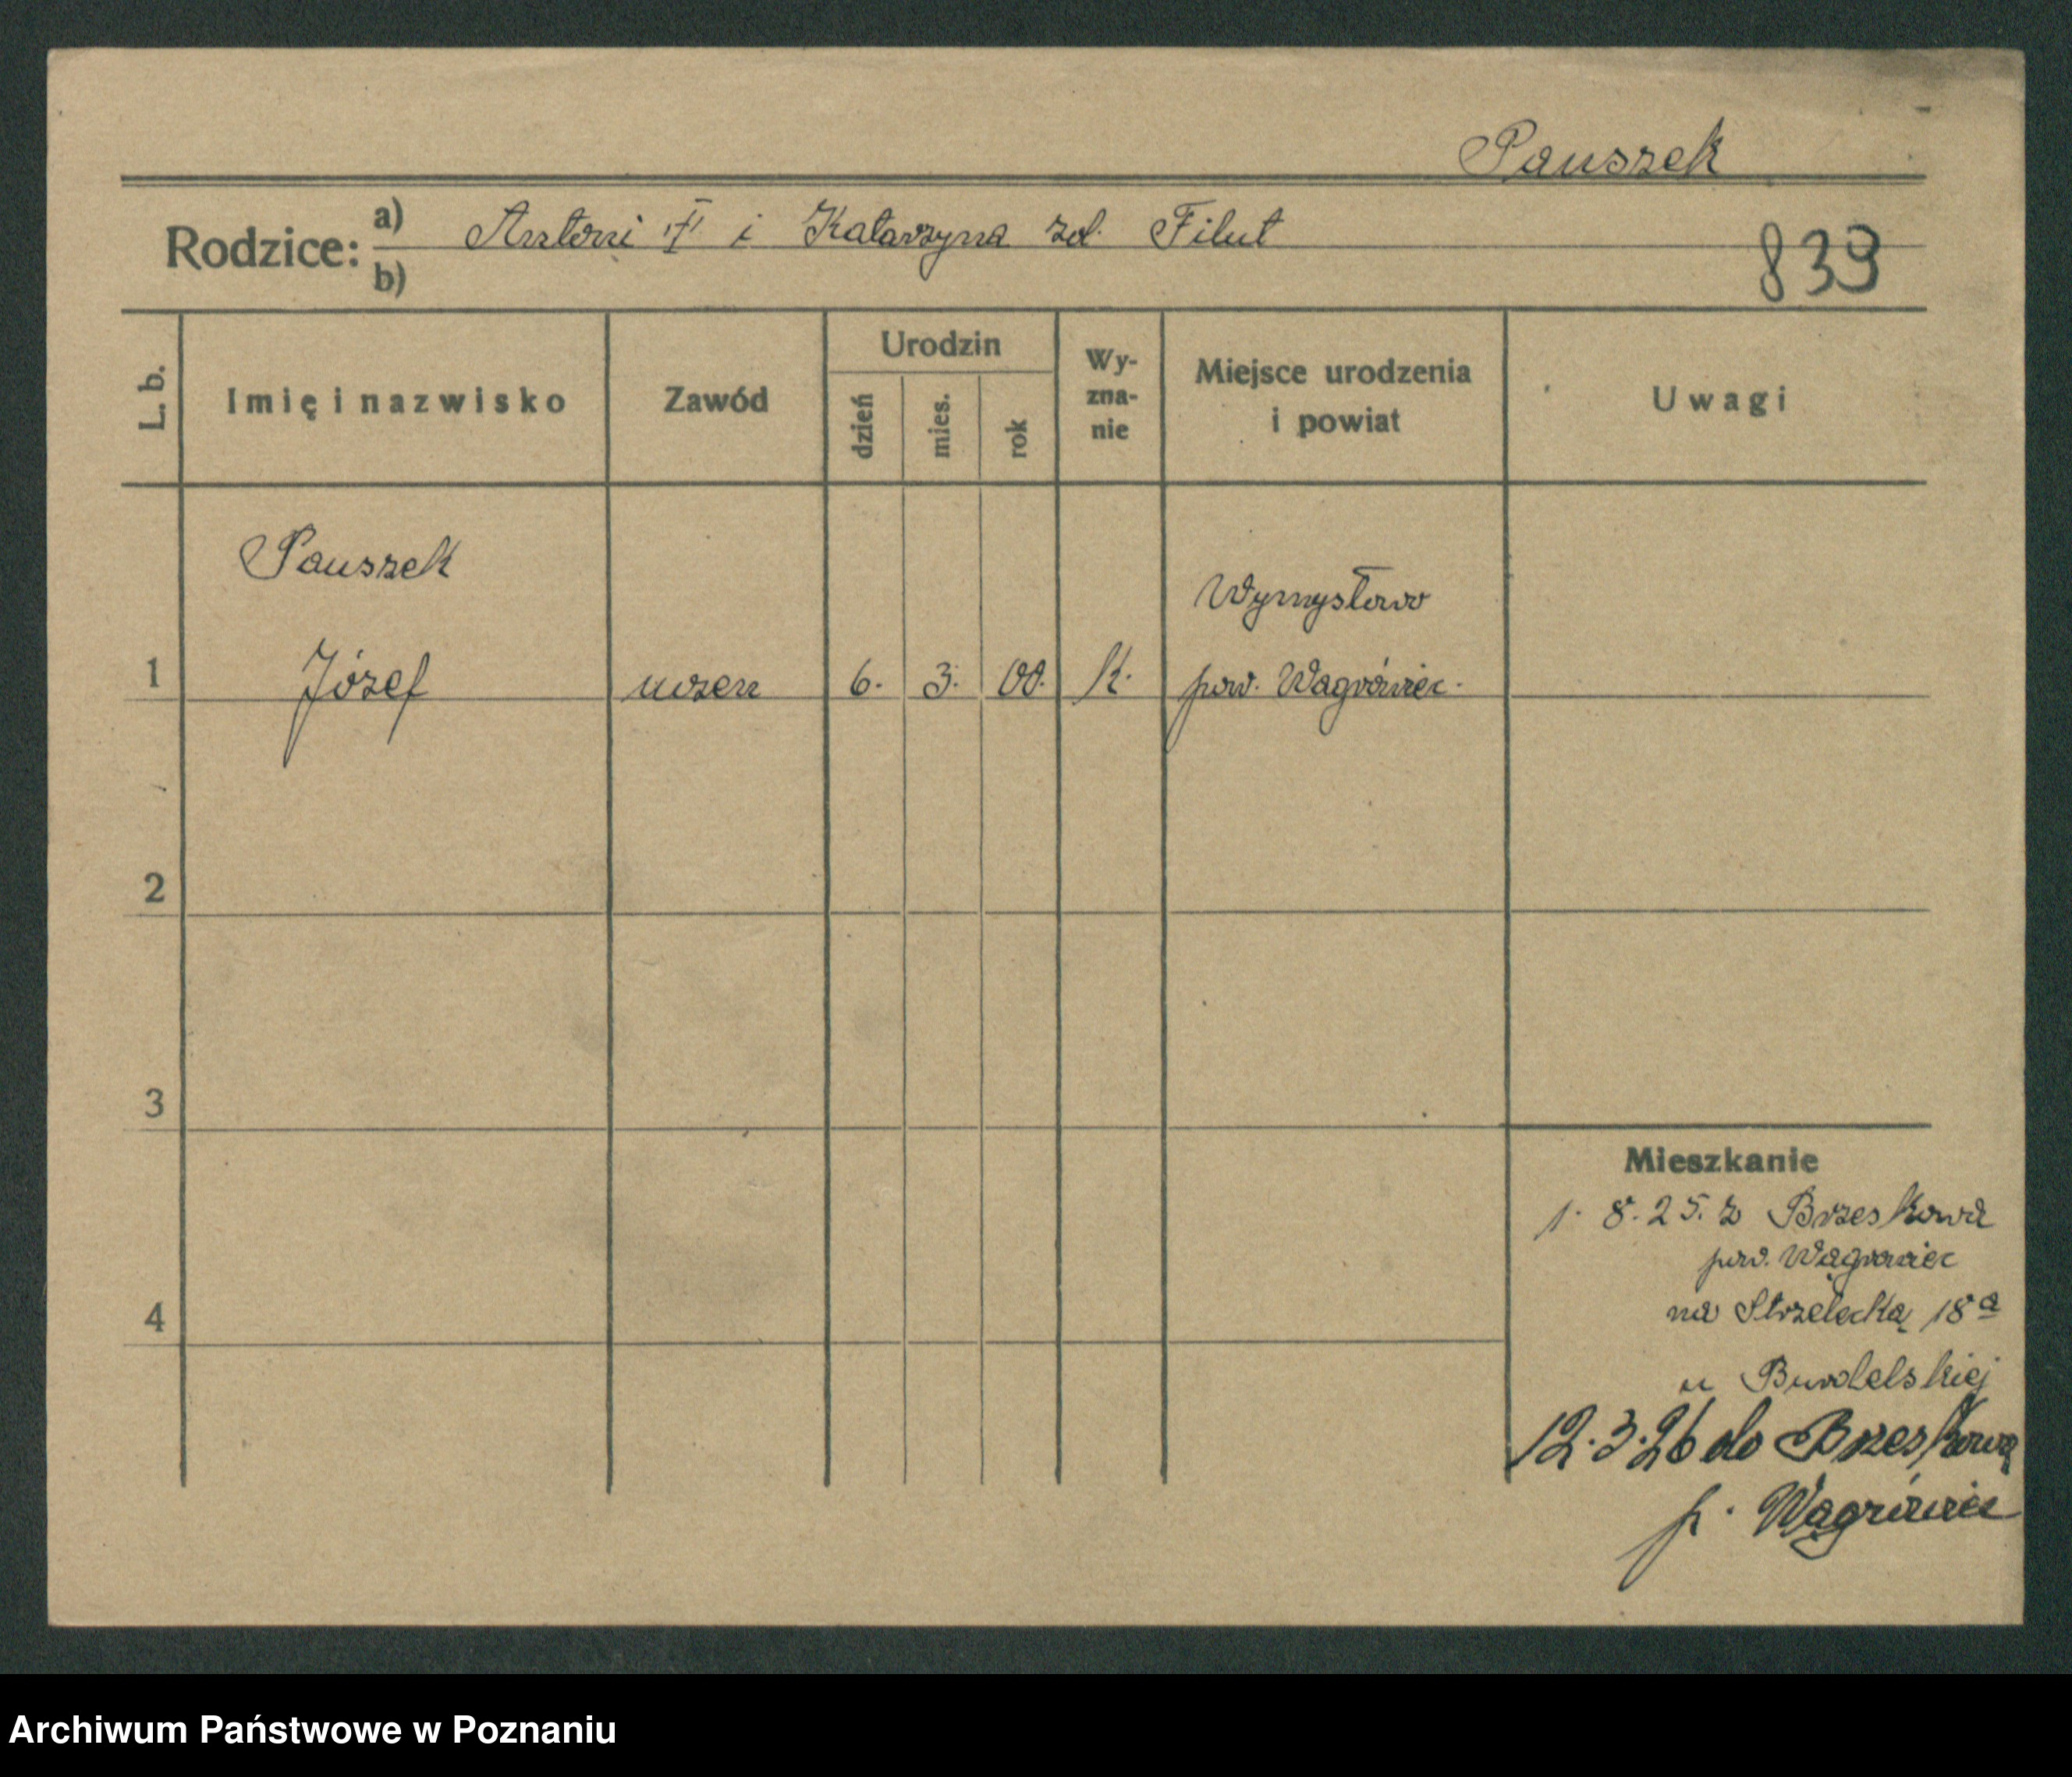 Pauszek
Rodzice: a) Antoni † i Katarzyna zd. Filut
b)
839
L. b.
Imię i nazwisko
Zawód
Urodzin
dzień
mies.
rok
Wy-
zna-
nie
Miejsce urodzenia
i powiat
Uwagi
Pauszek
Wymysłowo
1 Józef uczen 6. 3. 00. k. pow. Wagrówiec.
2
3
4
Mieszkanie
1. 8. 25. z Brzeskowa
pow. Wągrowiec
na Strzelecką 18 a
u Burdelskiej
12.3.26 do Brzeskowa
p. Wągrówiec
Archiwum Państwowe w Poznaniu